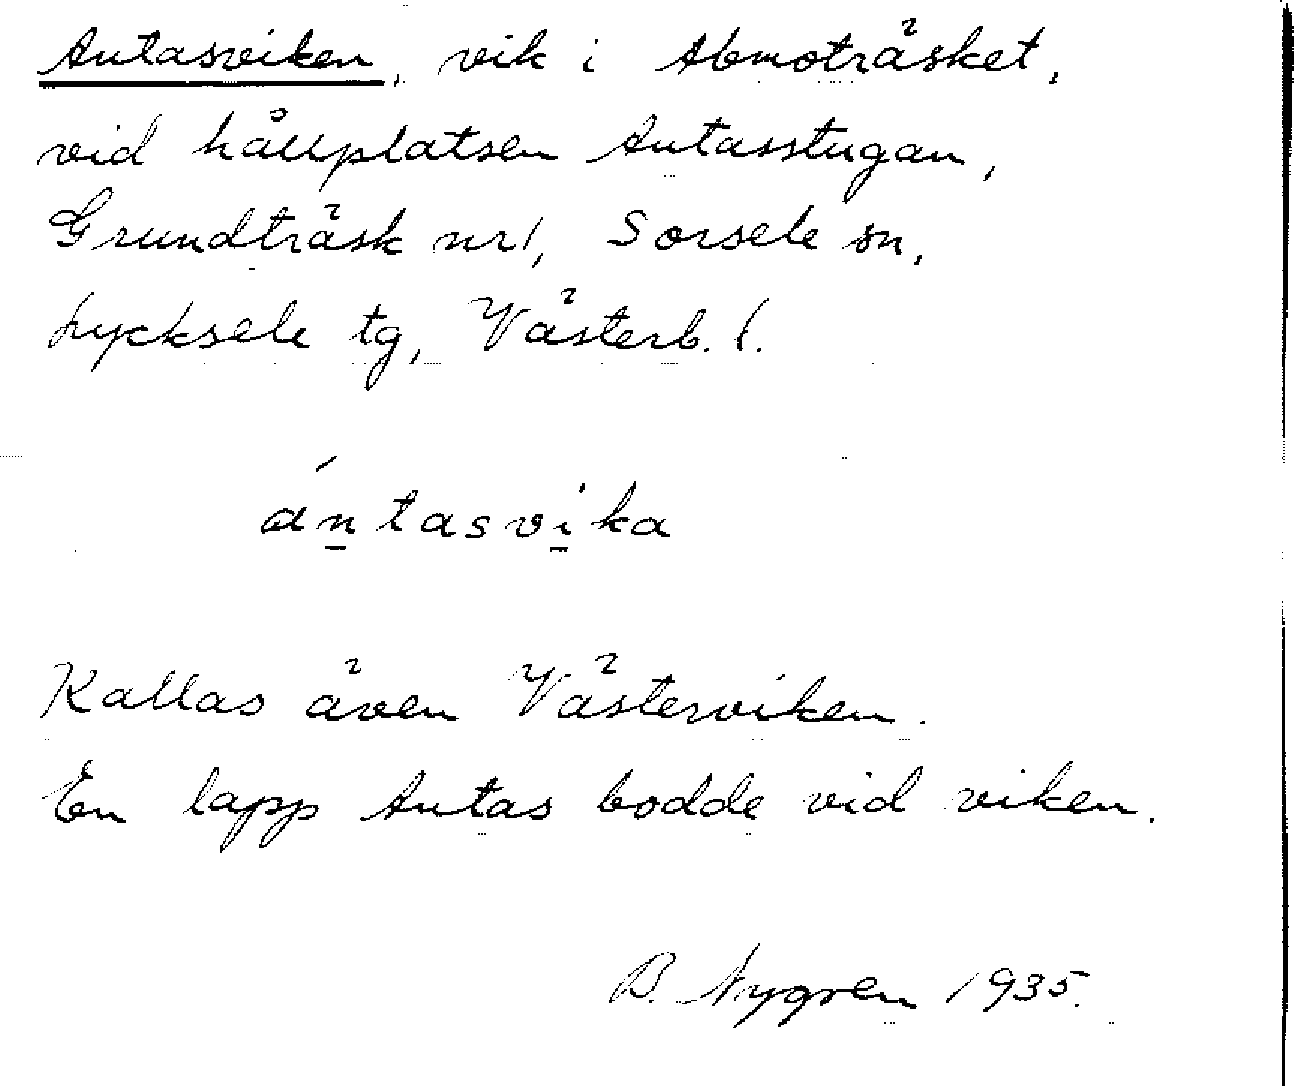 Antasviken, vik i Abmoträsket,
vid hållplatsen Antasstugan,
Grundträsk nr 1, Sorsele sn,
Lycksele tg, Västerb. l.
ántasvika
Kallas även Västerviken.
En lapp Antas bodde vid viken.
B. Nygren 1935.